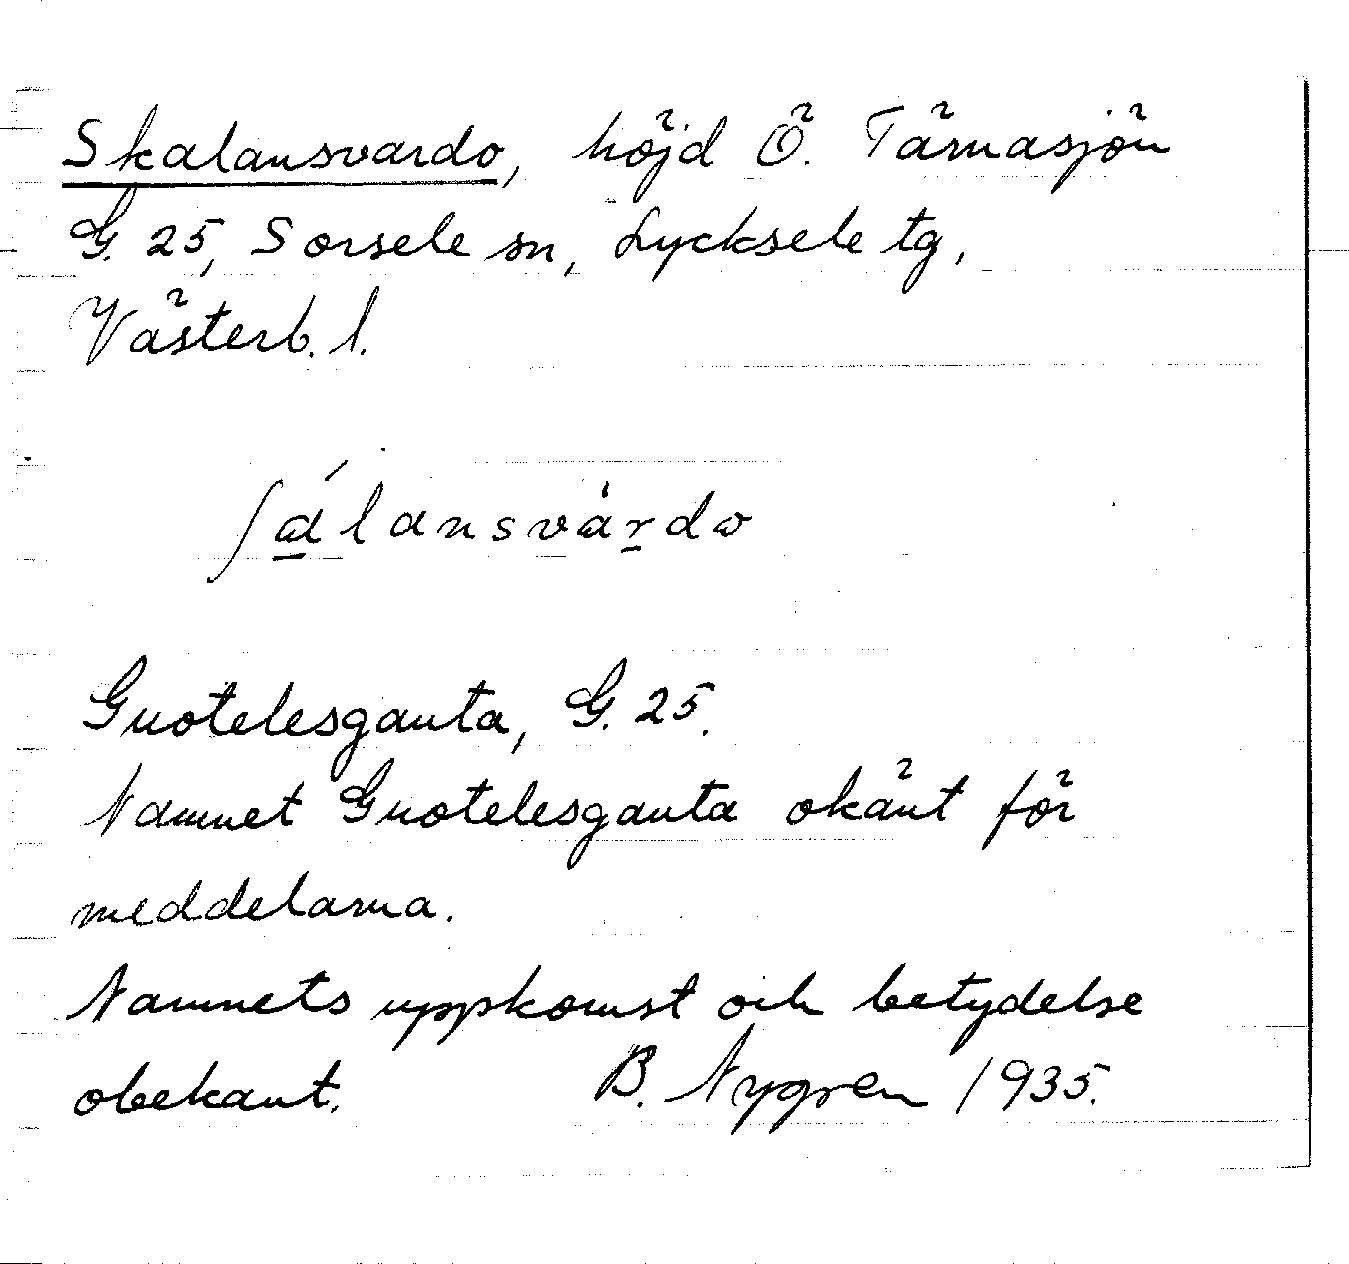 Skalansvardo, höjd Ö. Tärnasjön
G. 25, Sorsele sn, Lycksele tg,
Västerb. l.
ʃa̲´lansvàr̲do
Guotelesgauta, G. 25.
Namnet Guotelesgauta okänt för
meddelarna.
Namnets uppkomst och betydelse
obekant. B. Nygren 1935.